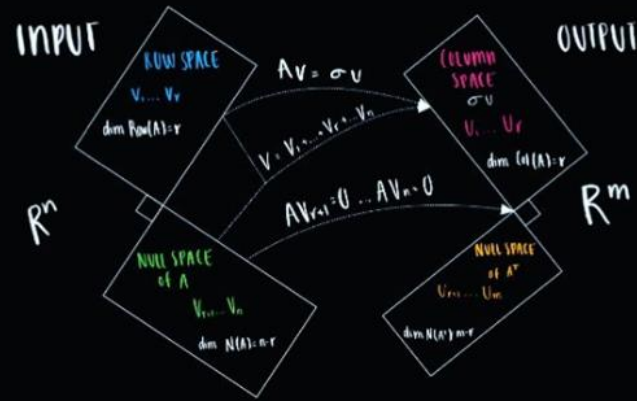 INPUT
OUTPUT
ROW SPACE
V₁... Vᵣ
dim Row(A)=r
AV = σU
V = V₁+...+Vᵣ+...Vₙ
COLUMN
SPACE
σU
U₁... Uᵣ
dim Col(A)=r
Rⁿ
Rᵐ
AVᵣ₊₁=0 ... AVₙ=0
NULL SPACE
of A
Vᵣ₊₁... Vₙ
dim N(A)=n-r
NULL SPACE
of Aᵀ
Uᵣ₊₁... Uₘ
dim N(Aᵀ) m-r